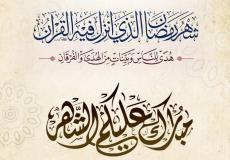 شهر رمضان الذي أنزل فيه القرآن
هدى للناس وبينات من الهدى والفرقان
مبارك عليكم الشهر